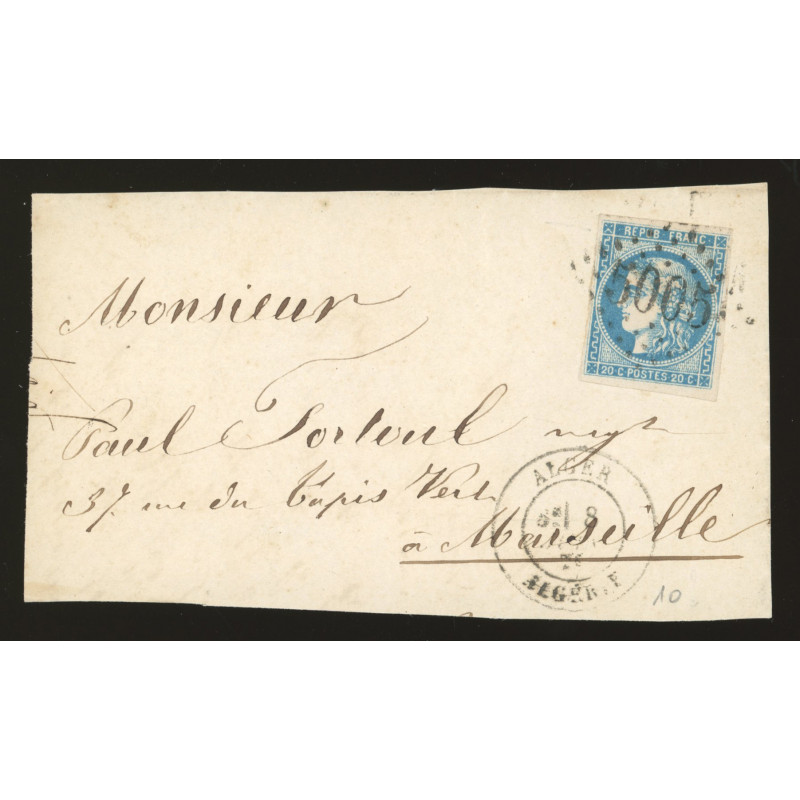 REPUB · FRANC
5005
20 C · POSTES · 20 C
Monsieur
Paul Fortoul negt
37 rue du Tapis Vert
à Marseille
ALGER
8
71
ALGÉRIE
10